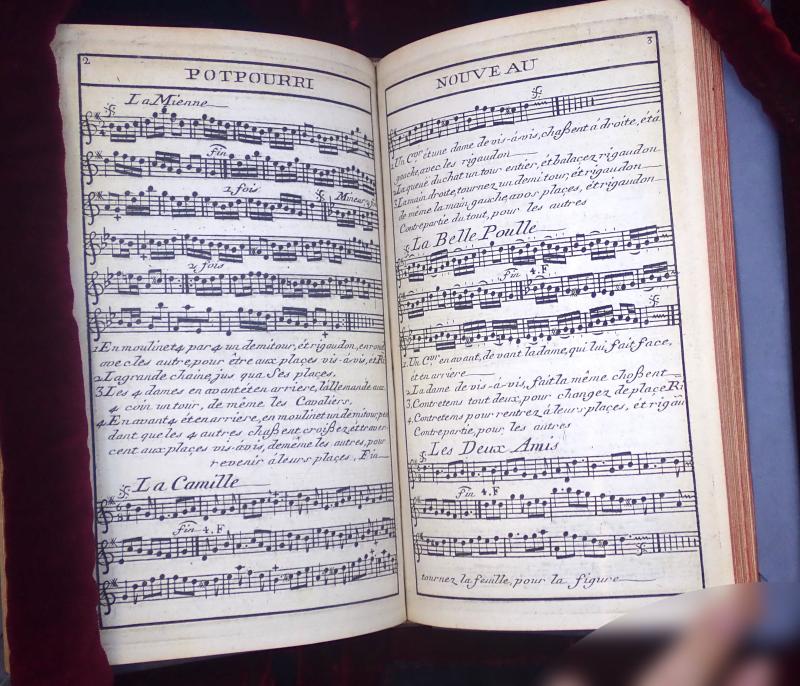 2
POTPOURRI
La Mienne
Fin
2 fois
Mineur
2 fois
1. En moulinet 4 par 4 un demi tour, ét rigaudon, en ron
avec les autre, pour être aux plaçes vis-á-vis, ét Ri
2. La grande chaine, jus qua Ses plaçes,
3. Les 4 dames en avant ét en arriere, l'allemande aux
4 coin un tour, de même les Cavaliers,
4. En avant 4 ét en arriere, en moulinet un demi tour, pen
dant que les 4 autres chaßent croißez ét traver
cent aux plaçes vis-á-vis, de même les autres, pour
revenir á leurs plaçes, Fin
La Camille
Fin 4. F
3
NOUVEAU
1. Un Cver ét une dame de vis-á-vis, chaßent á droite, ét á
gauche, avec les rigaudon
2. La queüe du chat un tour entier, ét balaçez rigaudon
3. La main droite, tournez un demi tour, ét rigaudon
de même la main gauche, a vos plaçes, ét rigaudon
Contre partie du tout, pour les autres
La Belle Poulle
Fin 4. F
1. Un Cver en avant, de vant la dame, qui lui, fait face,
ét en arriere
2. La dame de vis-á-vis, fait la même choßent
3. Contretems tout deux, pour changez de plaçe, Ri
4. Contretems pour rentrez á leurs plaçes, ét rigau
Contre partie, pour les autres
Les Deux Amis
Fin 4. F
tournez la feuille, pour la figure